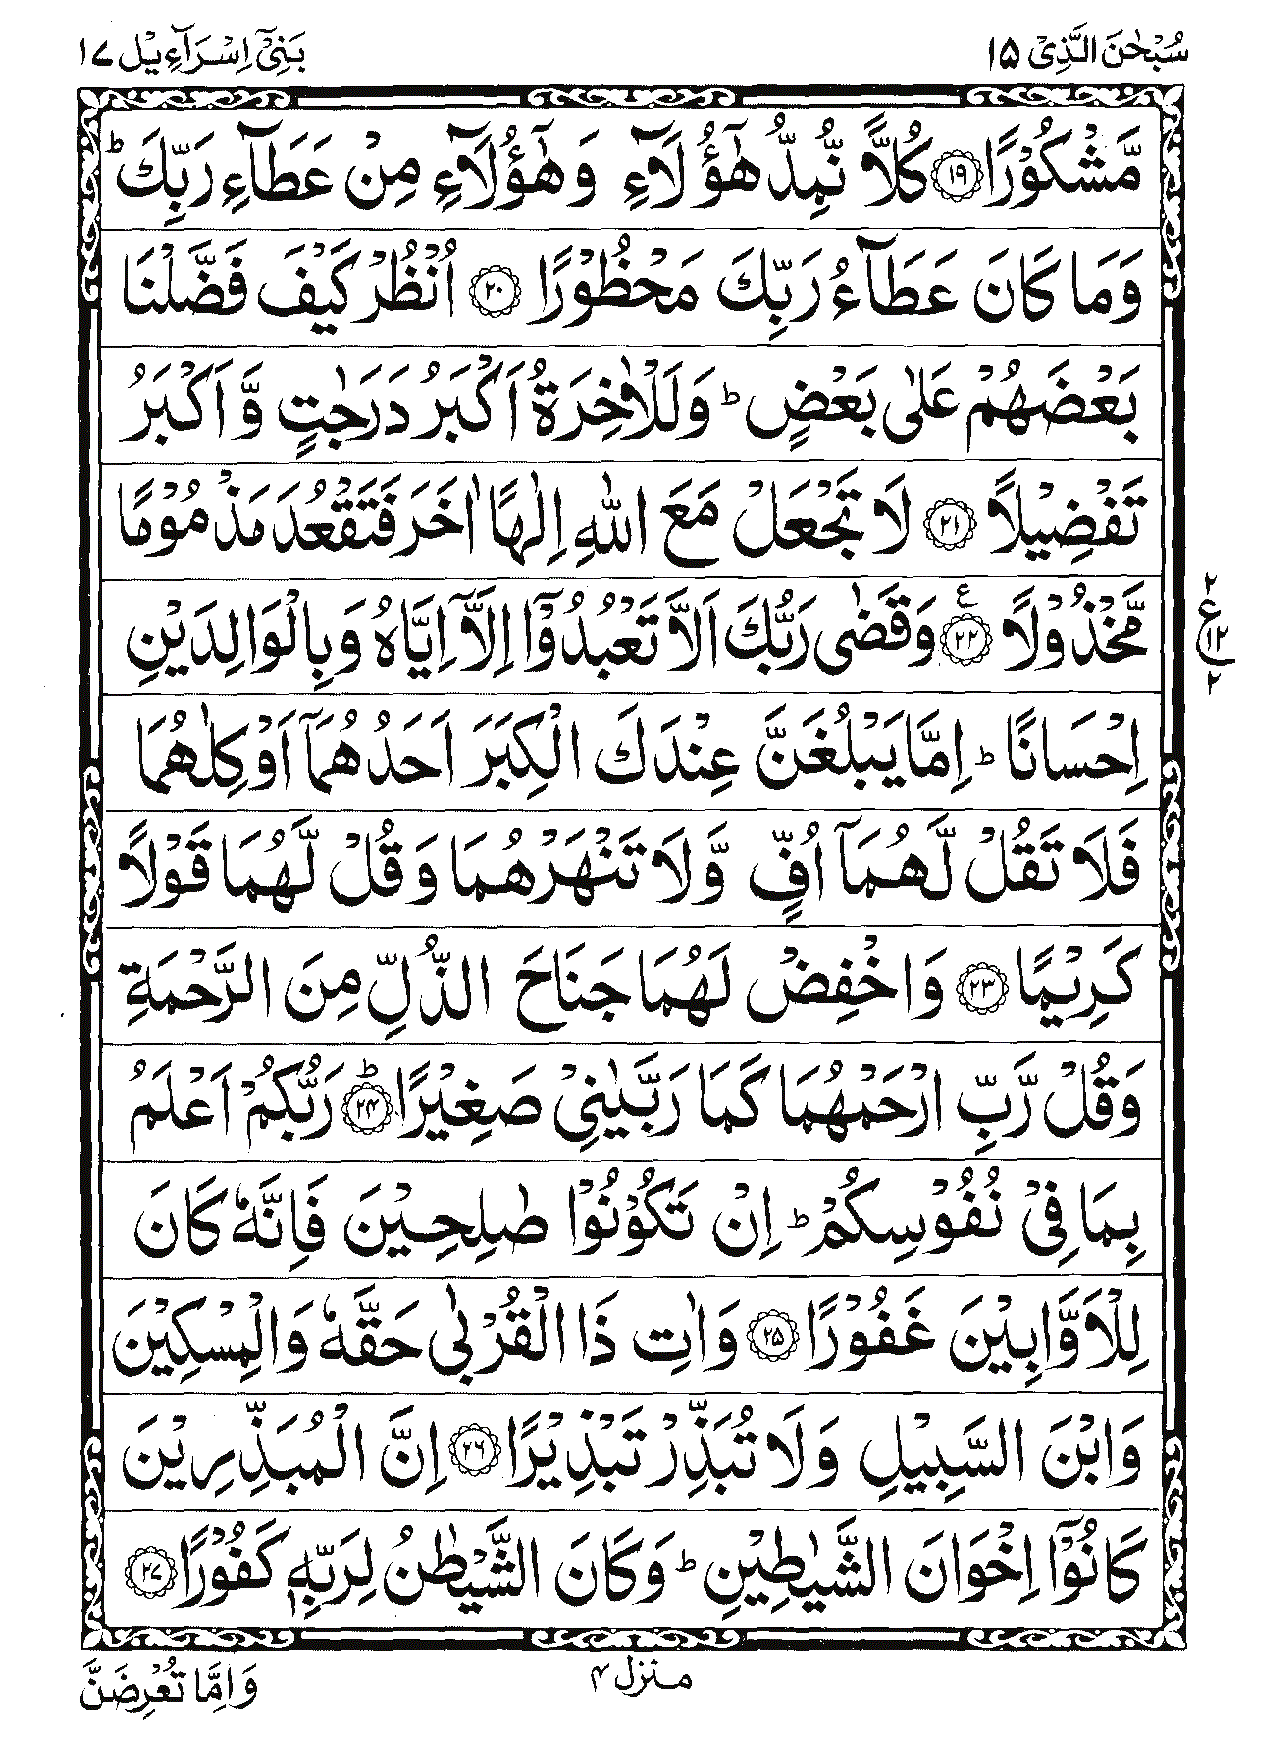 سُبْحٰنَ الَّذِیْۤ ۱۵
بَنِیْۤ اِسْرَآءِیْل ۱۷
مَّشْكُوْرًا ﴿۱۹﴾ كُلًّا نُّمِدُّ هٰۤؤُلَآءِ وَهٰۤؤُلَآءِ مِنْ عَطَآءِ رَبِّكَ ؕ
وَمَا كَانَ عَطَآءُ رَبِّكَ مَحْظُوْرًا ﴿۲۰﴾ اُنْظُرْ كَیْفَ فَضَّلْنَا
بَعْضَهُمْ عَلٰی بَعْضٍ ؕ وَلَلْاٰخِرَةُ اَكْبَرُ دَرَجٰتٍ وَّاَكْبَرُ
تَفْضِیْلًا ﴿۲۱﴾ لَا تَجْعَلْ مَعَ اللّٰهِ اِلٰهًا اٰخَرَ فَتَقْعُدَ مَذْمُوْمًا
مَّخْذُوْلًا ﴿۲۲﴾ ع وَقَضٰی رَبُّكَ اَلَّا تَعْبُدُوْۤا اِلَّاۤ اِیَّاهُ وَبِالْوَالِدَیْنِ
۲
ع
۱۲
۲
اِحْسَانًا ؕ اِمَّا یَبْلُغَنَّ عِنْدَكَ الْكِبَرَ اَحَدُهُمَاۤ اَوْ كِلٰهُمَا
فَلَا تَقُلْ لَّهُمَاۤ اُفٍّ وَّلَا تَنْهَرْهُمَا وَقُلْ لَّهُمَا قَوْلًا
كَرِیْمًا ﴿۲۳﴾ وَاخْفِضْ لَهُمَا جَنَاحَ الذُّلِّ مِنَ الرَّحْمَةِ
وَقُلْ رَّبِّ ارْحَمْهُمَا كَمَا رَبَّیٰنِیْ صَغِیْرًا ؕ﴿۲۴﴾ رَبُّكُمْ اَعْلَمُ
بِمَا فِیْ نُفُوْسِكُمْ ؕ اِنْ تَكُوْنُوْا صٰلِحِیْنَ فَاِنَّهٗ كَانَ
لِلْاَوَّابِیْنَ غَفُوْرًا ﴿۲۵﴾ وَاٰتِ ذَا الْقُرْبٰی حَقَّهٗ وَالْمِسْكِیْنَ
وَابْنَ السَّبِیْلِ وَلَا تُبَذِّرْ تَبْذِیْرًا ﴿۲۶﴾ اِنَّ الْمُبَذِّرِیْنَ
كَانُوْۤا اِخْوَانَ الشَّیٰطِیْنِ ؕ وَكَانَ الشَّیْطٰنُ لِرَبِّهٖ كَفُوْرًا ﴿۲۷﴾
منزل ۴
وَاِمَّا تُعْرِضَنَّ